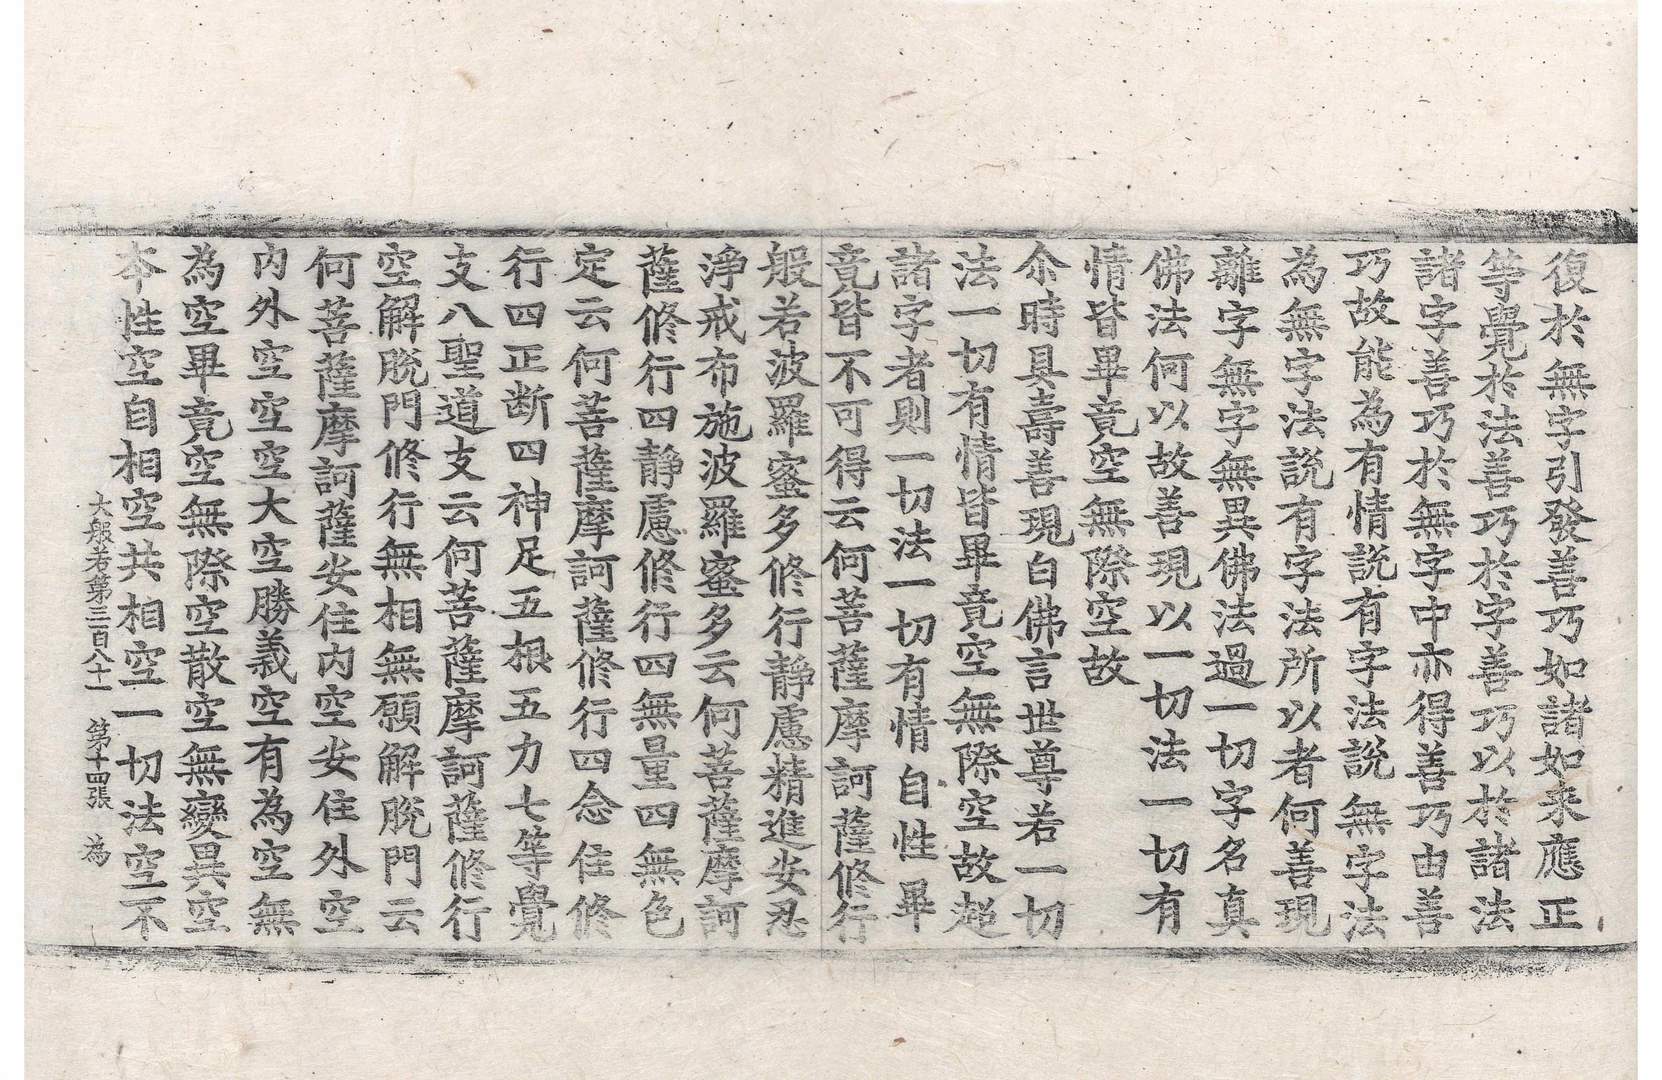 復於無字引發善巧如諸如来應正
等覺於法善巧於字善巧以於諸法
諸字善巧於無字中亦得善巧由善
巧故能為有情說有字法說無字法
為無字法說有字法所以者何善現
離字無字無異佛法過一切字名真
佛法何以故善現以一切法一切有
情皆畢竟空無際空故
尒時具壽善現白佛言世尊若一切
法一切有情皆畢竟空無際空故超
諸字者則一切法一切有情自性畢
竟皆不可得云何菩薩摩訶薩修行
般若波羅蜜多修行靜慮精進安忍
淨戒布施波羅蜜多云何菩薩摩訶
薩修行四靜慮修行四無量四無色
定云何菩薩摩訶薩修行四念住修
行四正断四神足五根五力七等覺
支八聖道支云何菩薩摩訶薩修行
空解脫門修行無相無願解脫門云
何菩薩摩訶薩安住內空安住外空
內外空空空大空勝義空有為空無
為空畢竟空無際空散空無變異空
夲性空自相空共相空一切法空不
大般若第三百八十一　第十四張　為